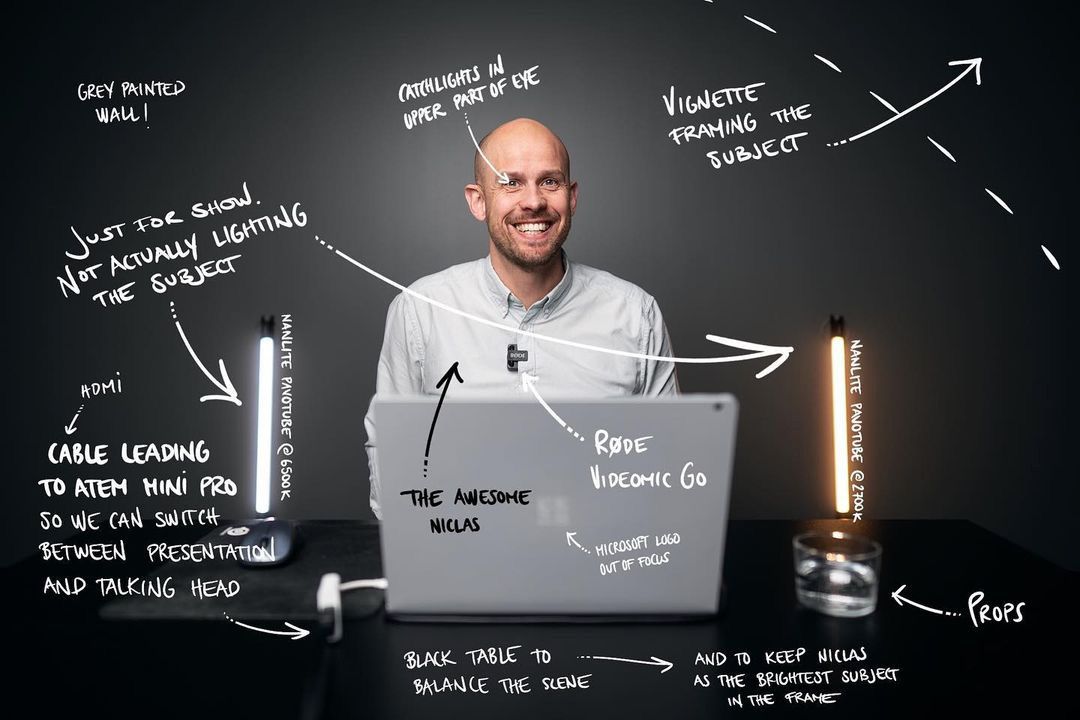 GREY PAINTED
WALL!
CATCHLIGHTS IN
UPPER PART OF EYE
VIGNETTE
FRAMING THE
SUBJECT
JUST FOR SHOW.
NOT ACTUALLY LIGHTING
THE SUBJECT
NANLITE PAVOTUBE @ 6500K
NANLITE PAVOTUBE @ 2700K
RØDE
HDMi
CABLE LEADING
TO ATEM MiNi PRO
SO WE CAN SWITCH
BETWEEN PRESENTATION
AND TALKING HEAD
RØDE
VIDEOMIC GO
THE AWESOME
NICLAS
MICROSOFT LOGO
OUT OF FOCUS
PROPS
BLACK TABLE TO
BALANCE THE SCENE
AND TO KEEP NICLAS
AS THE BRIGHTEST SUBJECT
IN THE FRAME